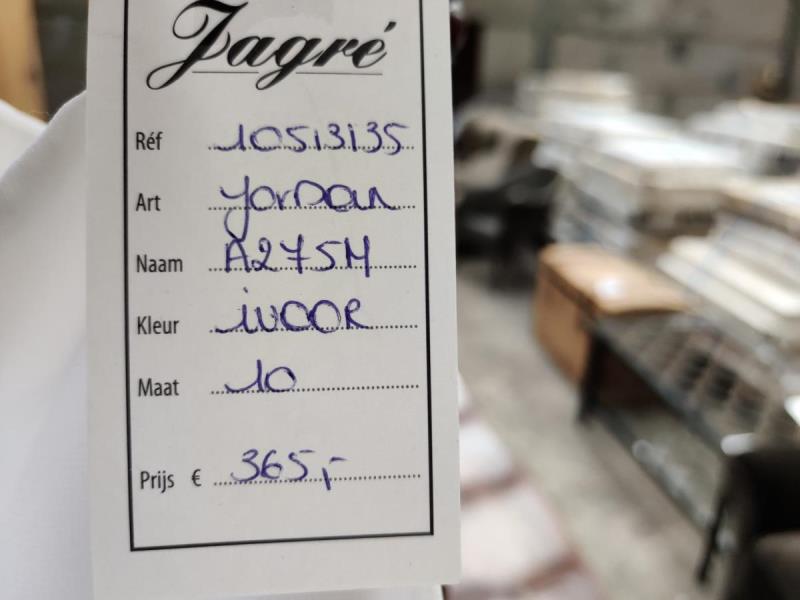 Jagré
Réf 10513135
Art Jordan
Naam A275M
Kleur ivoor
Maat 10
Prijs € 365,-